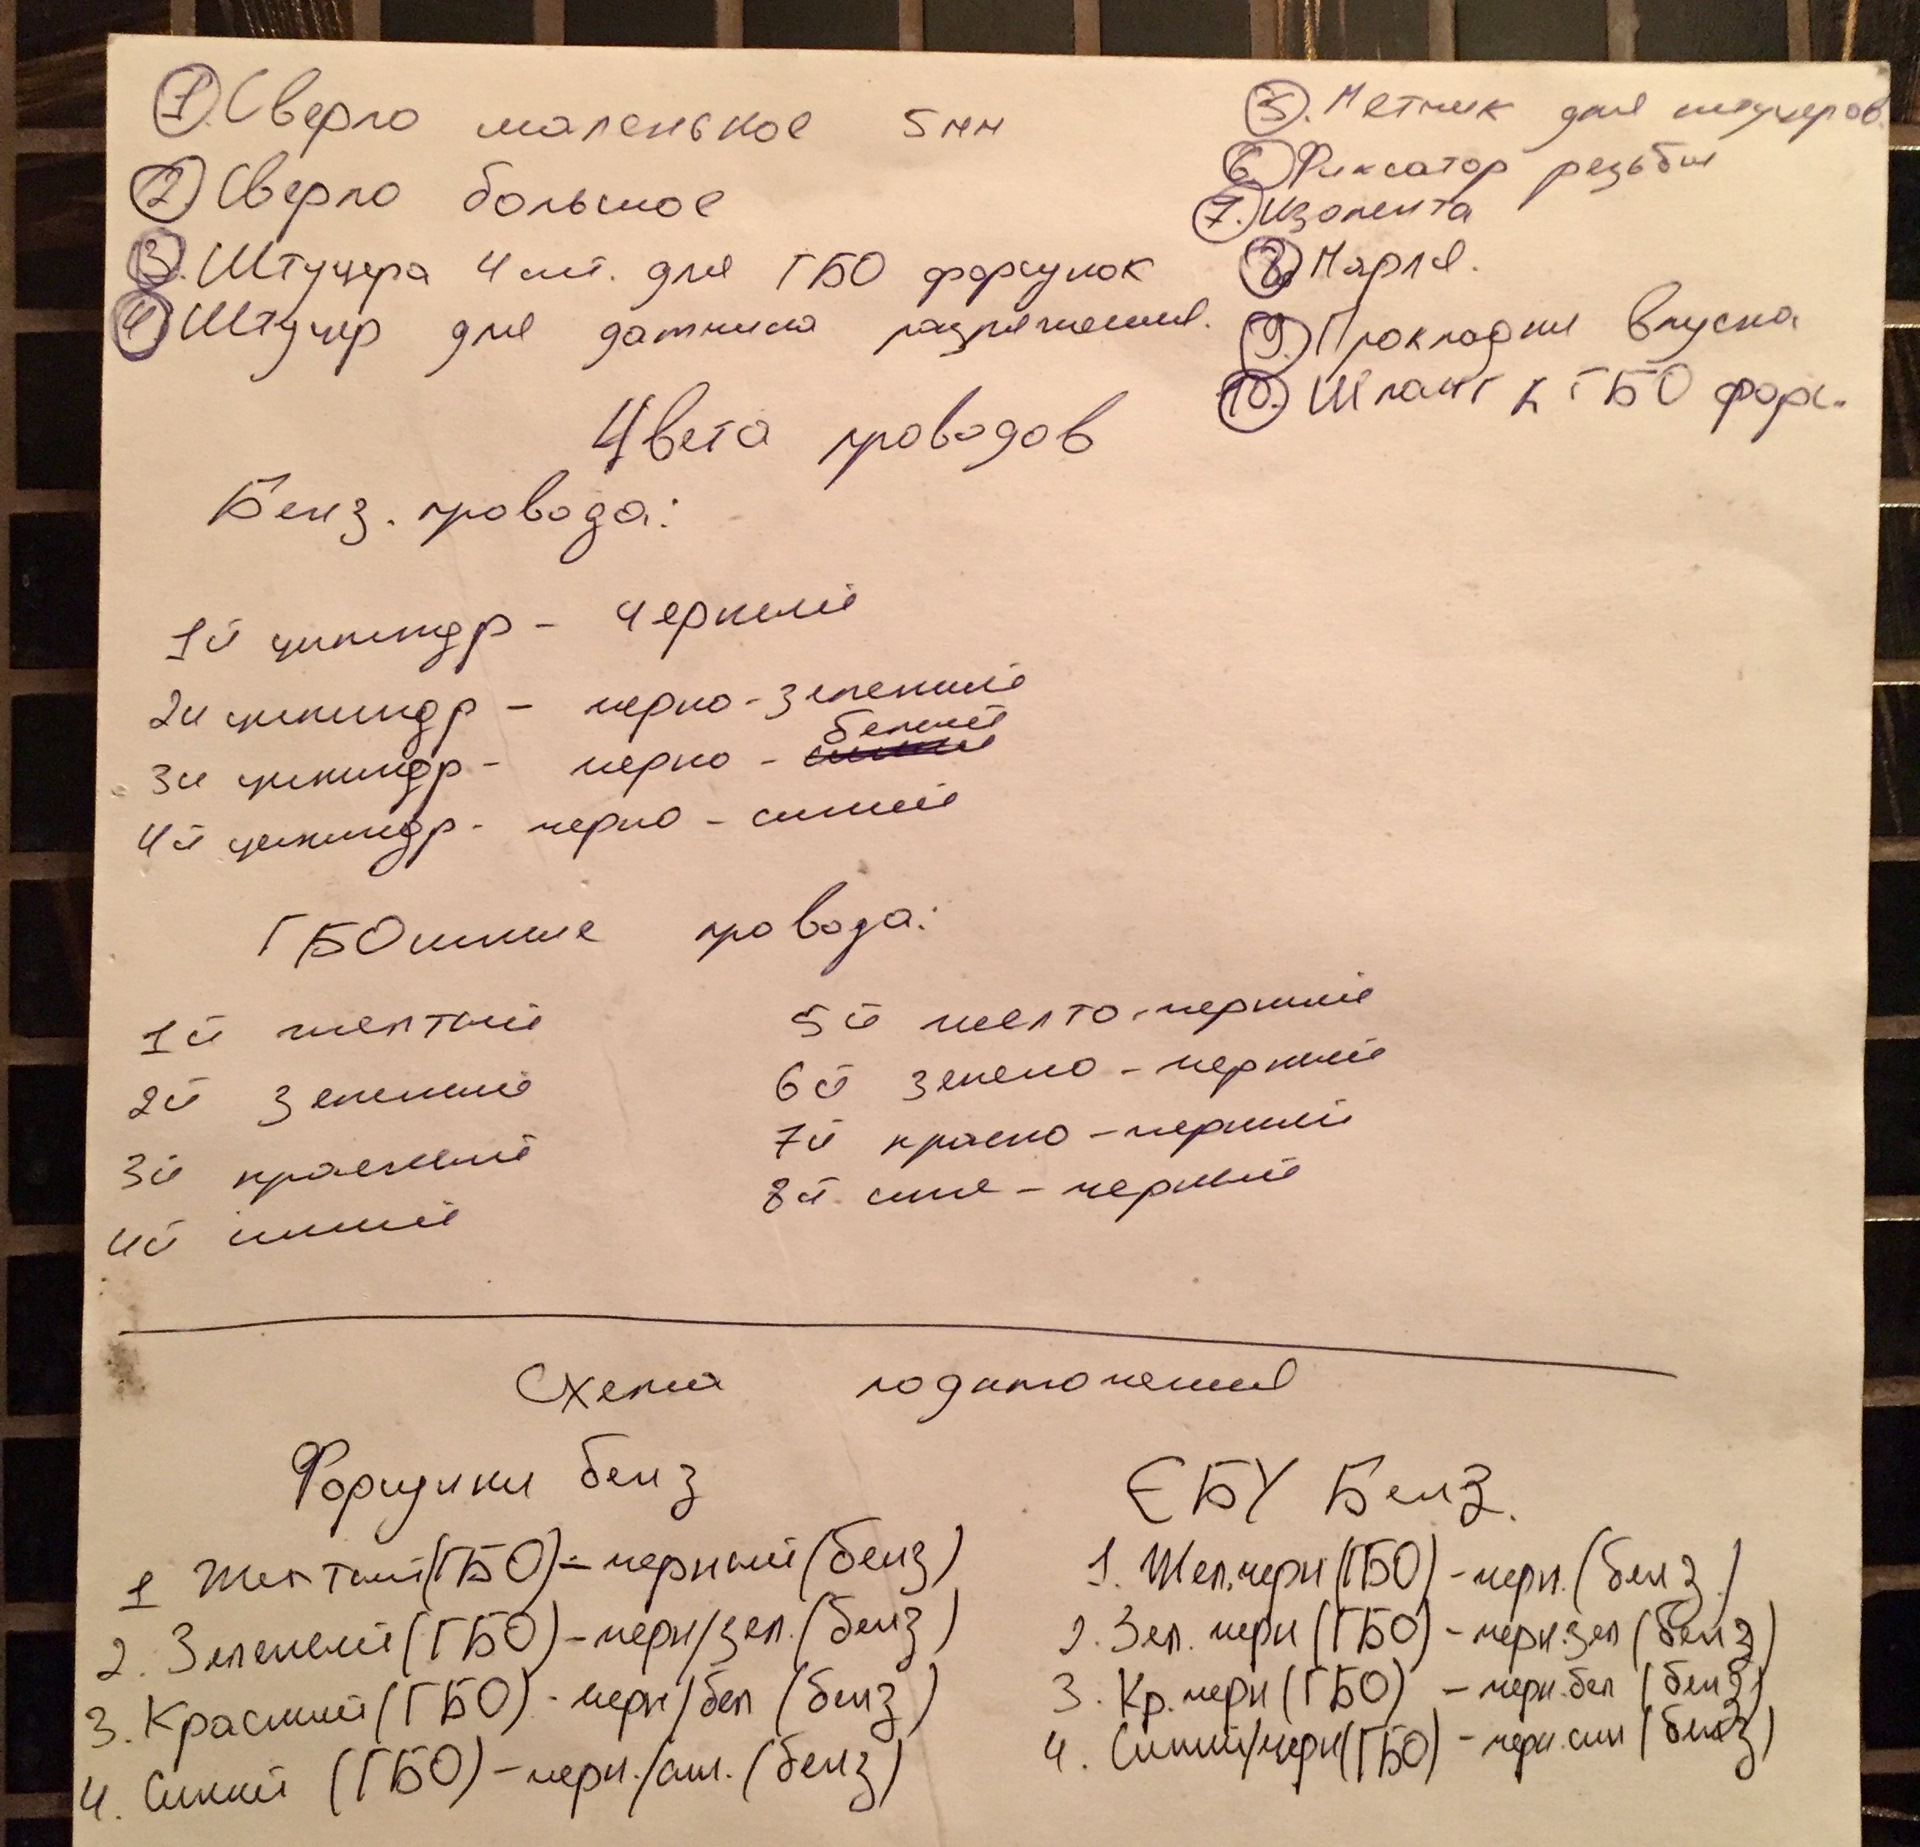 1. Сверло маленькое 5мм
2. Сверло большое
3. Штуцера 4 шт. для ГБО форсунок
4. Штуцер для датчика разряжения.
5. Метчик для штуцеров.
6. Фиксатор резьбы
7. Изолента
8. Марля.
9. Прокладки впуска
10. Шланг к ГБО форс.
Цвета проводов
Бенз. провода:
1й цилиндр - черный
2й цилиндр - черно-зеленый
3й цилиндр - черно - белый
4й цилиндр - черно - синий
ГБОшные провода:
1й желтый
2й зеленый
3й красный
4й синий
5й желто-черный
6й зелено - черный
7й красно - черный
8й сине - черный
Схема подключения
Форсунки бенз
1 Желтый (ГБО) - черный (бенз)
2. Зеленый (ГБО) - черн/зел. (бенз)
3. Красный (ГБО) - черн/бел (бенз)
4. Синий (ГБО) - черн./син. (бенз)
ЄБУ Бенз.
1. Жел.черн (ГБО) - черн. (бенз.)
2. Зел. черн (ГБО) - черн.зел (бенз)
3. Кр. черн (ГБО) - черн.бел (бенз)
4. Синий/черн (ГБО) - черн.син (бенз)